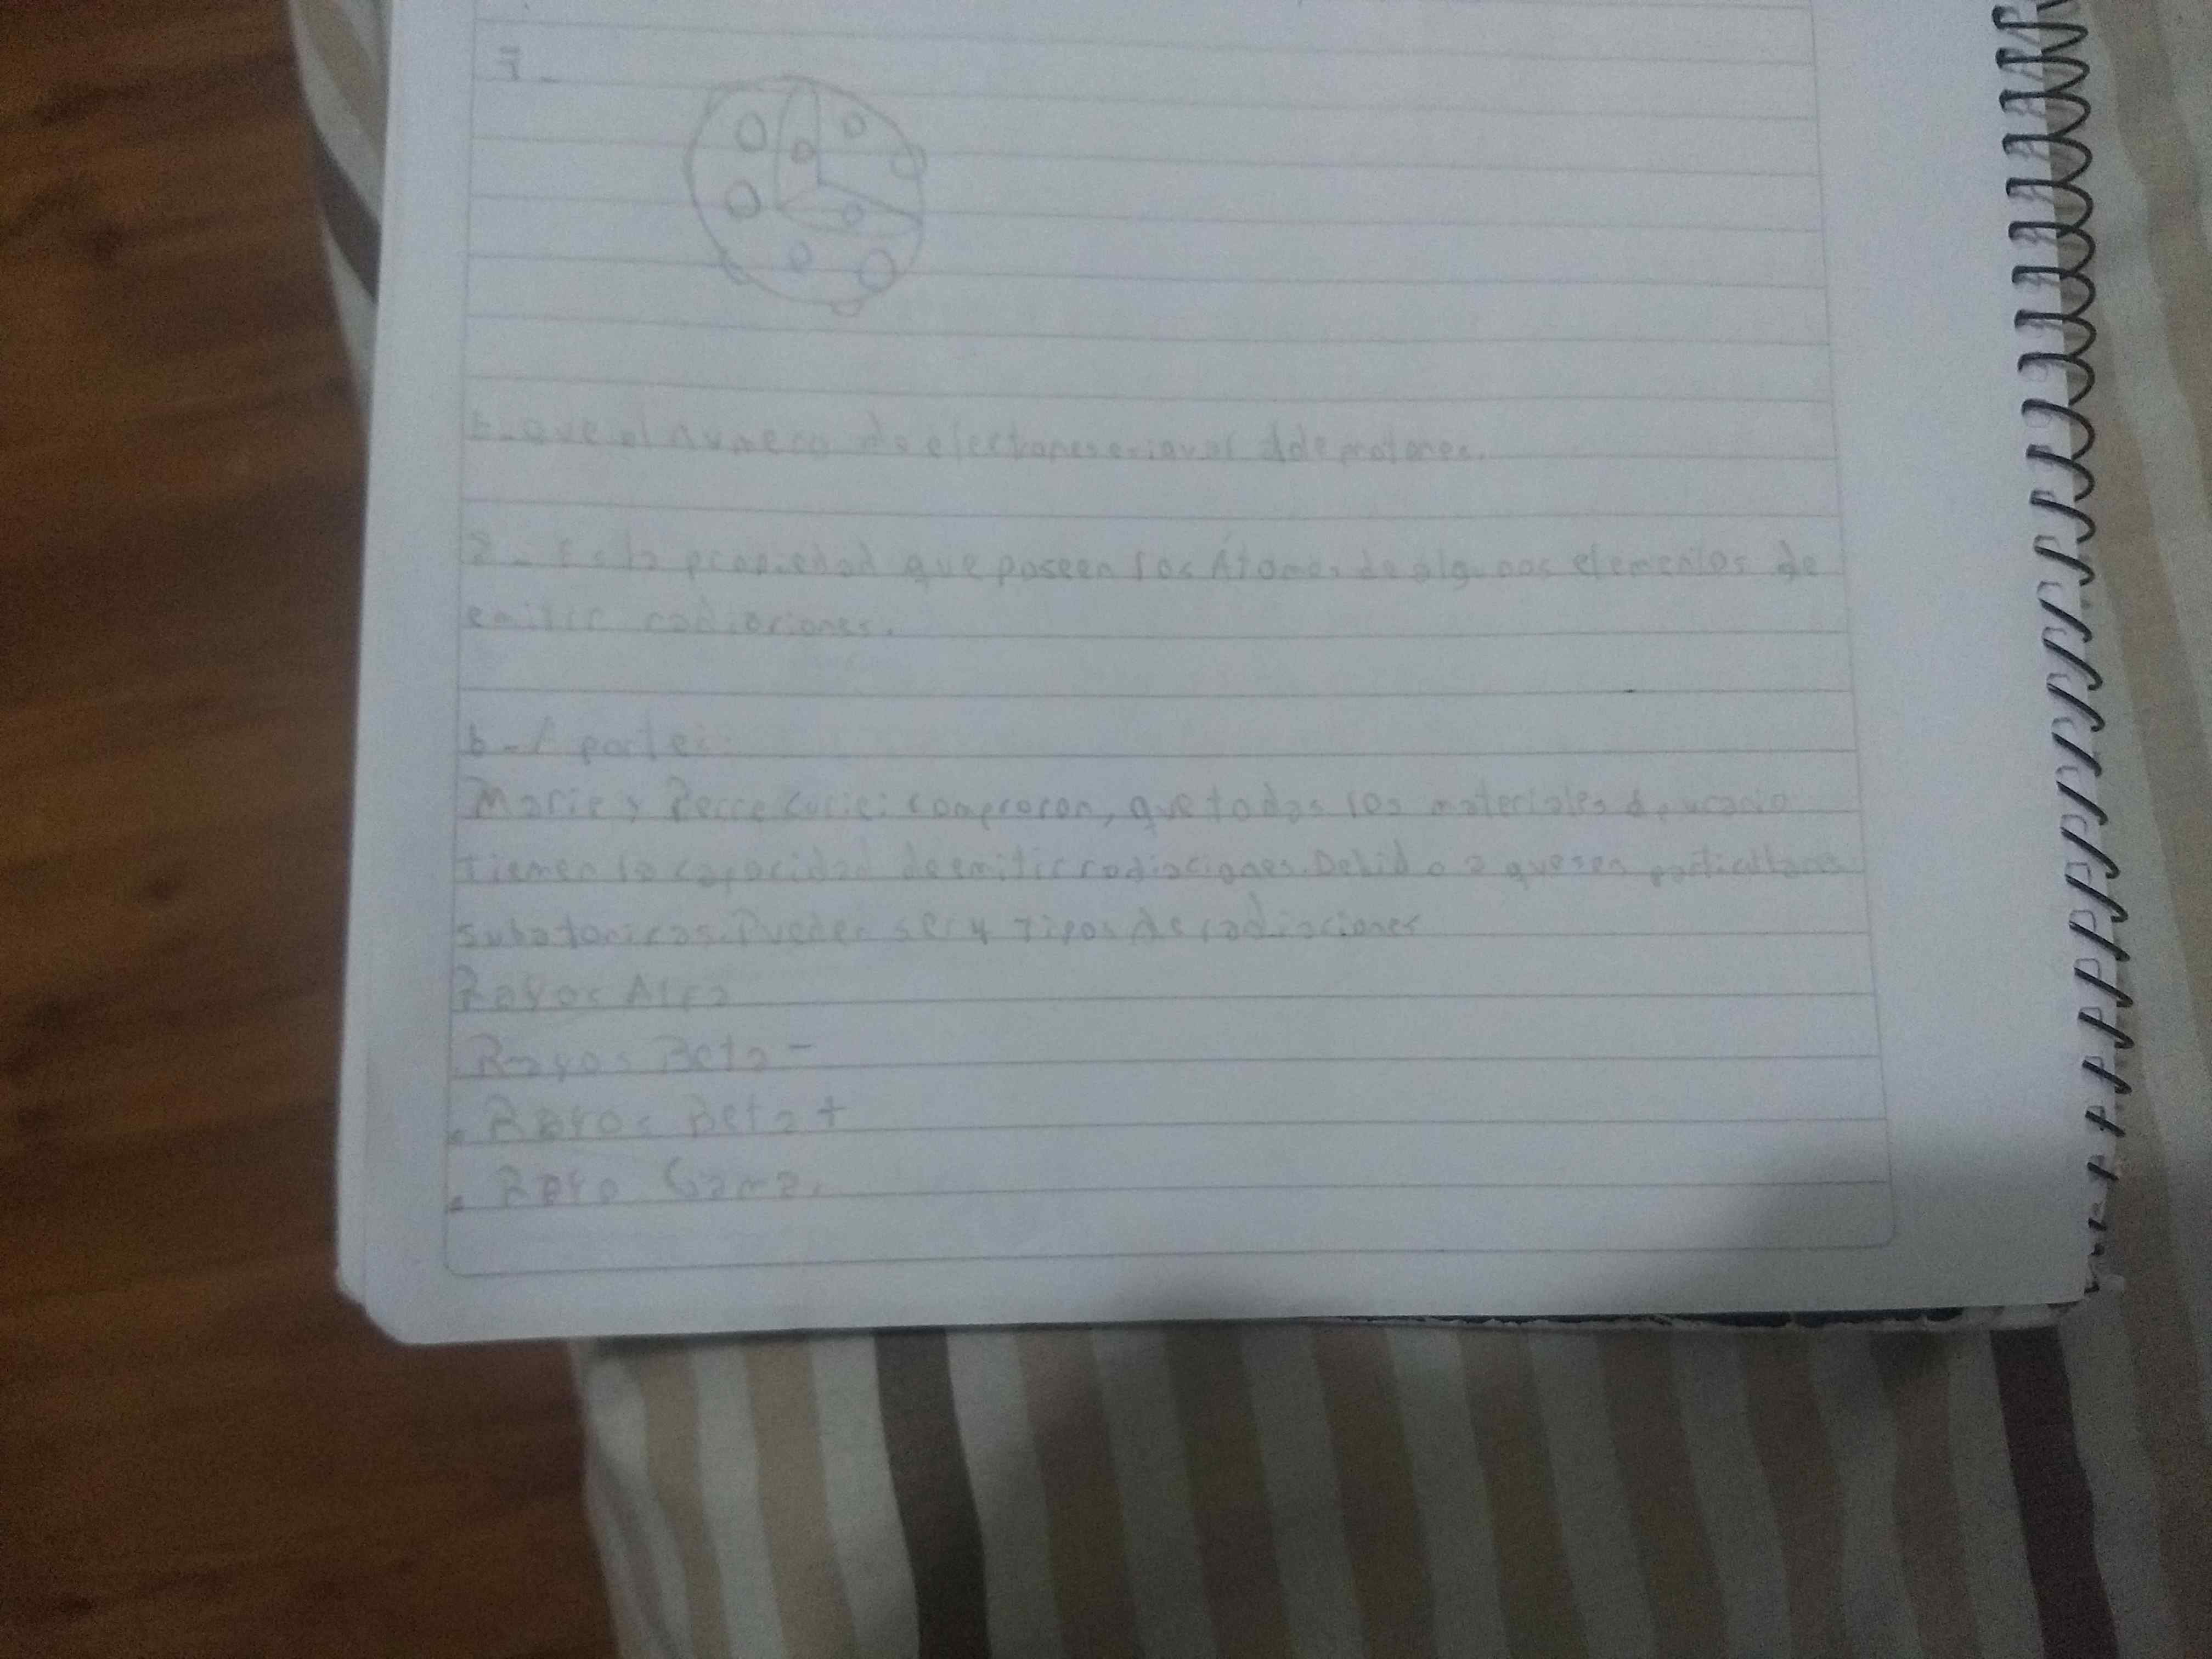 7-
b- que el numero de electrones seria al de protones.
8- Es la propiedad que poseen los Átomos de algunos elementos de
emitir radiaciones.
b- 1 parte:
Marie y Perre Curie: comproron, que todos los materiales de uranio
tienen la capacidad de emitir radiaciones. Debido a que son
subatomicas. Pueden ser 4 tipos de radiaciones
Rayos Alfa
. Rayos Beta -
. Rayos Beta +
. Rayo Gama.